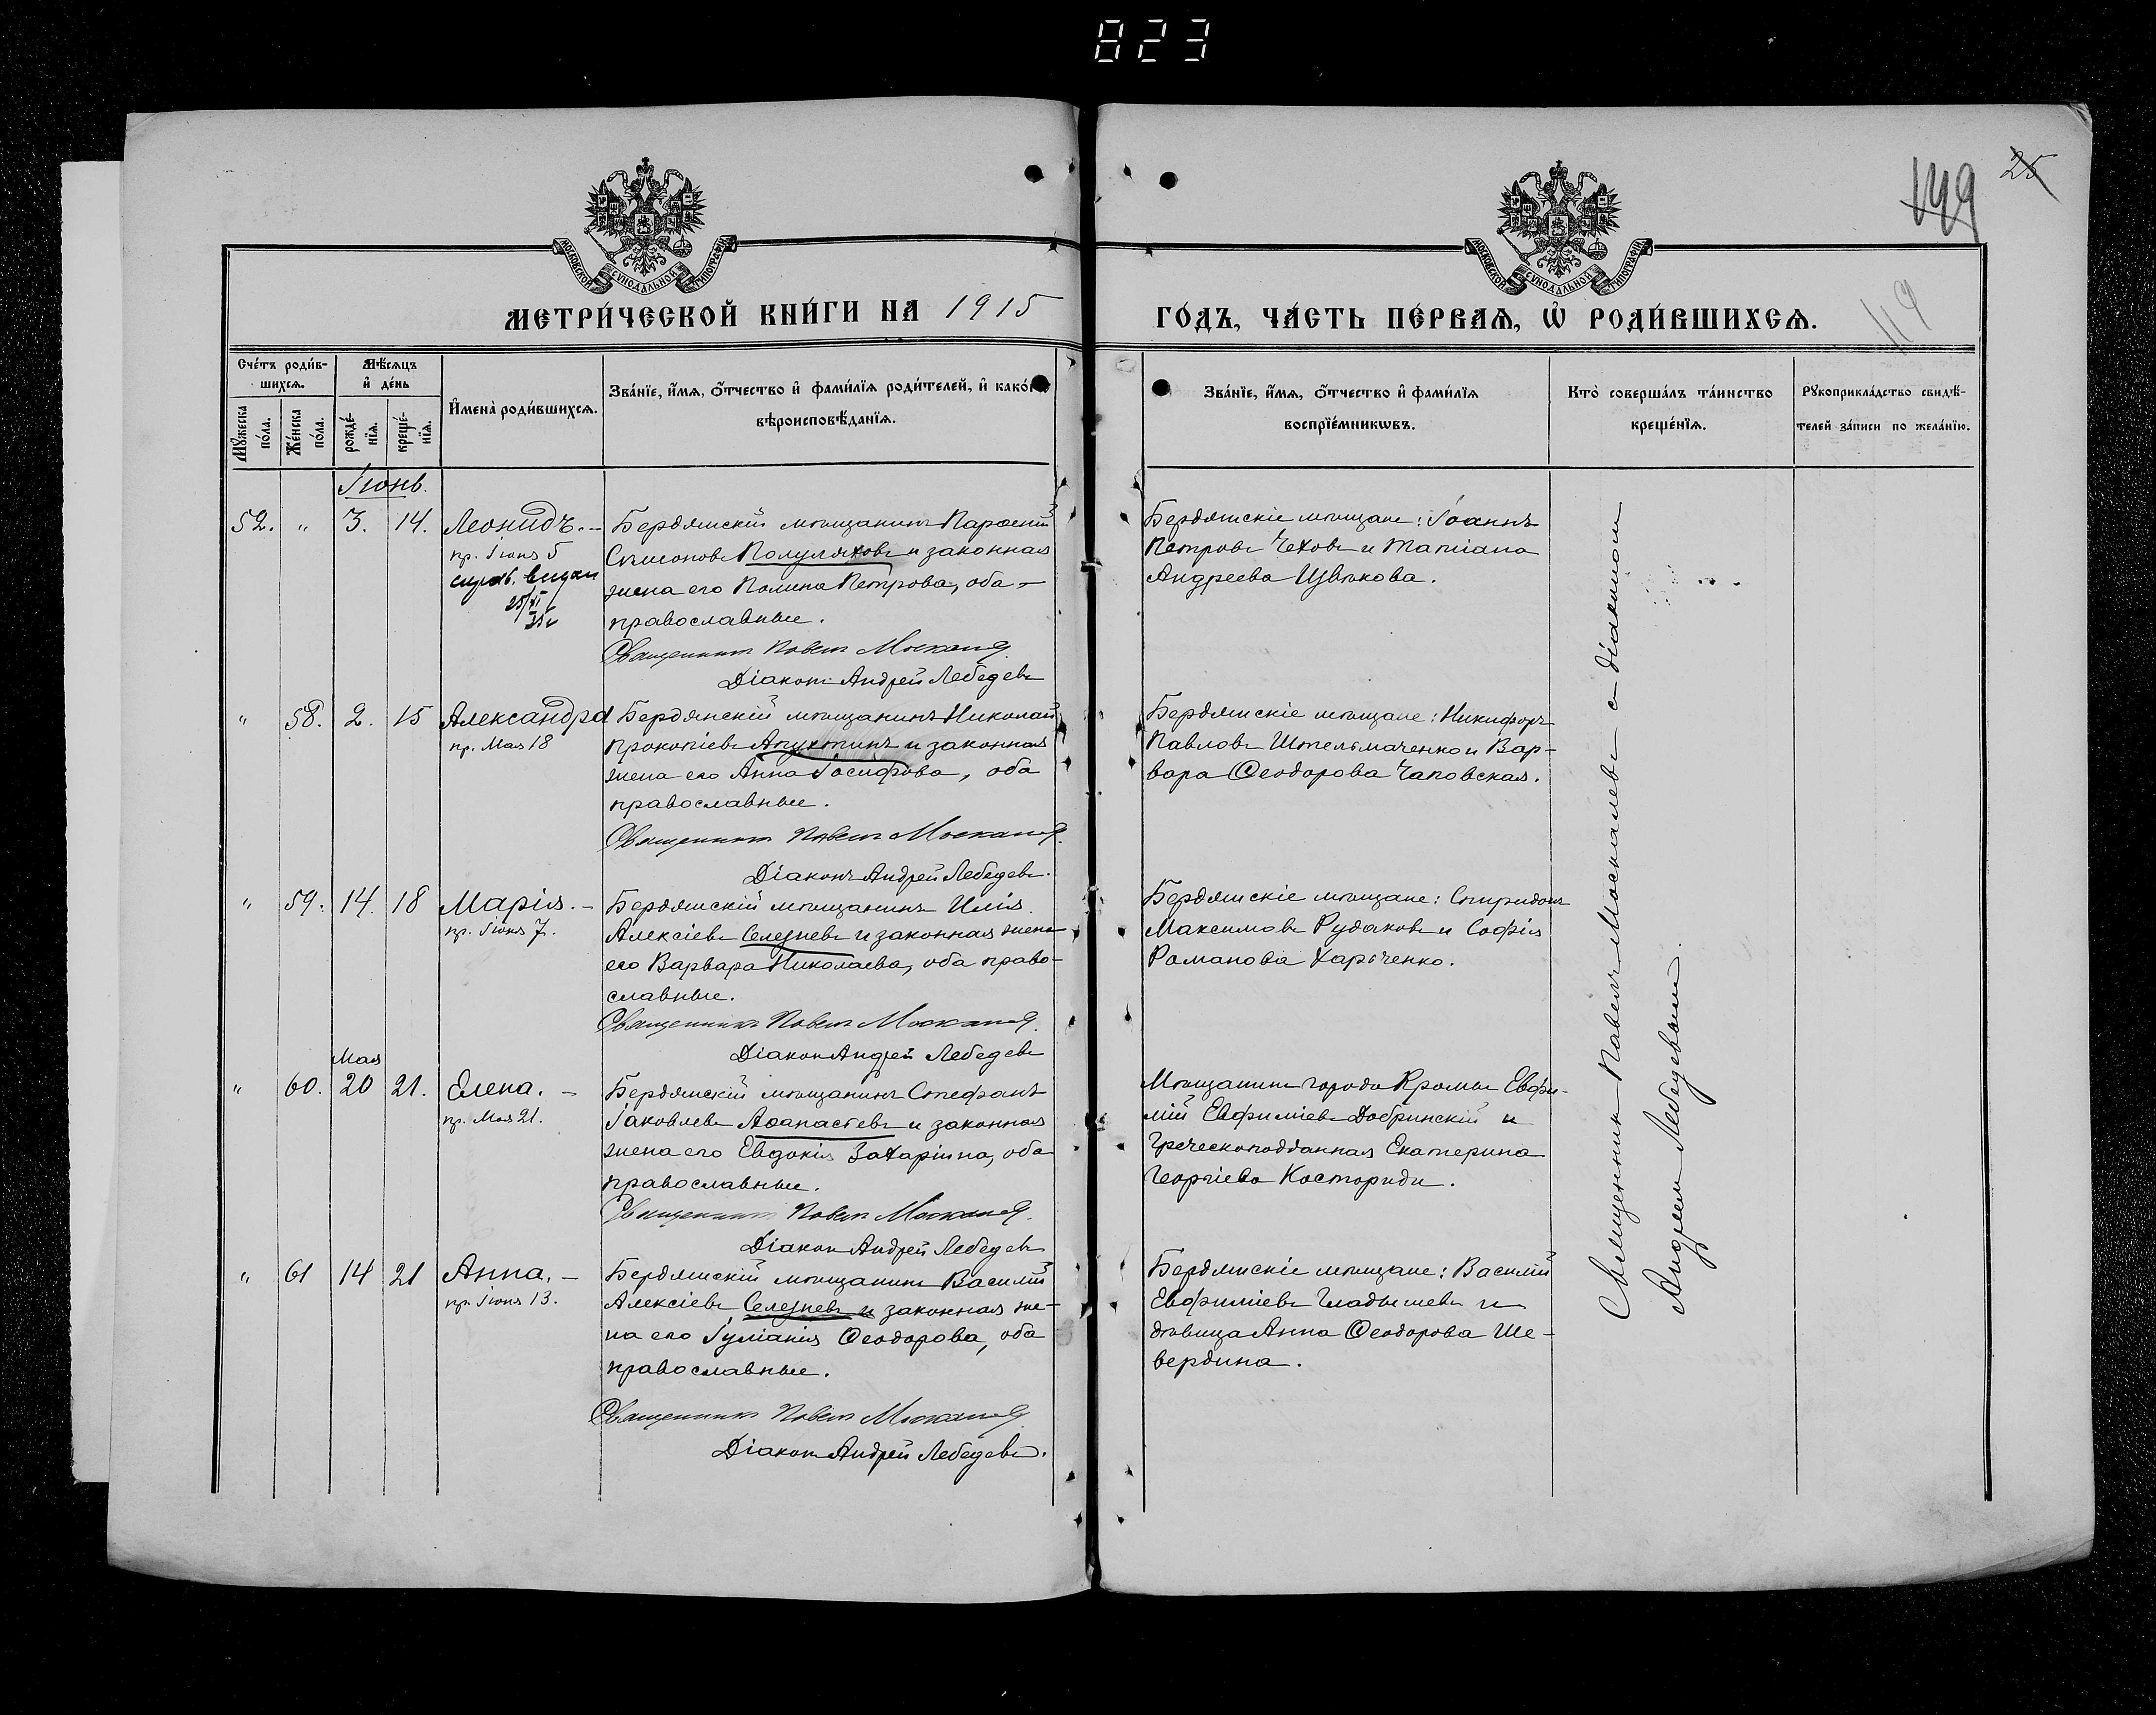 823
25
149
119
МОСКОВСКОЙ СѴНОДАЛЬНОЙ ТИПОГРАФІИ
МОСКОВСКОЙ СѴНОДАЛЬНОЙ ТИПОГРАФІИ
МЕТРИ́ЧЕСКОЙ КНИ́ГИ НА 1915
ГО́ДЪ, ЧА́СТЬ ПЕ́РВАѦ, Ѡ҆ РОДИ́ВШИХСѦ.
Сче́тъ роди́в-
шихсѧ.
Мѣ́сѧцъ
и҆ де́нь
Мꙋ́жеска по́ла.
Же́нска по́ла.
рожде́-нїѧ.
креще́-нїѧ.
И҆мена̀ роди́вшихсѧ.
Зва́нїе, и҆́мѧ, ѻ҆́тчество и҆ фами́лїѧ роди́телей, и҆ како́гѡ
вѣроисповѣ́данїѧ.
Зва́нїе, и҆́мѧ, ѻ҆́тчество и҆ фами́лїѧ
воспрїе́мникѡвъ.
Кто̀ соверша́лъ та́инство
креще́нїѧ.
Рꙋкоприкла́дство свидѣ́-
телей за́писи по жела́нїю.
Іюнь.
52. " 3. 14. Леонидъ. –
пр. Іюня 5
справ. выдан
25/XI
Бердянскій мѣщанинъ Парѳеній
Сѵмеоновъ Полуляховъ и законная
жена его Полина Петрова, оба –
православные.
Священникъ Павелъ Москалев
Діаконъ Андрей Лебедевъ
Бердянскіе мѣщане: Іоаннъ
Петровъ Чеховъ и Татіана
Андреева Цвѣткова.
" 58. 2. 15 Александра
пр. Мая 18
Бердянскій мѣщанинъ Николай
Прокопіевъ Апухтинъ и законная
жена его Анна Іосифова, оба
православные.
Священникъ Павелъ Москалев.
Діаконъ Андрей Лебедевъ.
Бердянскіе мѣщане: Никифоръ
Павловъ Штельмаченко и Вар-
вара Ѳеодорова Чаповская.
" 59. 14. 18 Марія. –
пр. Іюня 7.
Бердянскій мѣщанинъ Илія
Алексіевъ Селезневъ и законная жена
его Варвара Николаева, оба право-
славные.
Священникъ Павелъ Москалев.
Діаконъ Андрей Лебедевъ
Бердянскіе мѣщане: Спиридонъ
Максимовъ Рудаковъ и Софія
Романова Харченко.
Мая
" 60. 20 21. Елена. –
пр. Мая 21.
Бердянскій мѣщанинъ Стефанъ
Іаковлевъ Аѳанасьевъ и законная
жена его Евдокія Захаріина, оба
православные.
Священникъ Павелъ Москалев.
Діаконъ Андрей Лебедевъ
Мѣщанинъ города Кромы Евфи-
мій Евфиміевъ Добринскій и
Греческоподданная Екатерина
Георгіева Косториди.
" 61 14 21 Анна. –
пр. Іюня 13.
Бердянскій мѣщанинъ Василій
Алексіевъ Селезневъ и законная же-
на его Іуліанія Ѳеодорова, оба
православные.
Священникъ Павелъ Москалев
Діаконъ Андрей Лебедевъ.
Бердянскіе мѣщане: Василій
Евфиміевъ Гладышевъ и
дѣвица Анна Ѳеодорова Ше-
вердина.
Священникъ Павелъ Москалевъ съ діакономъ
Андреем Лебедевымъ.